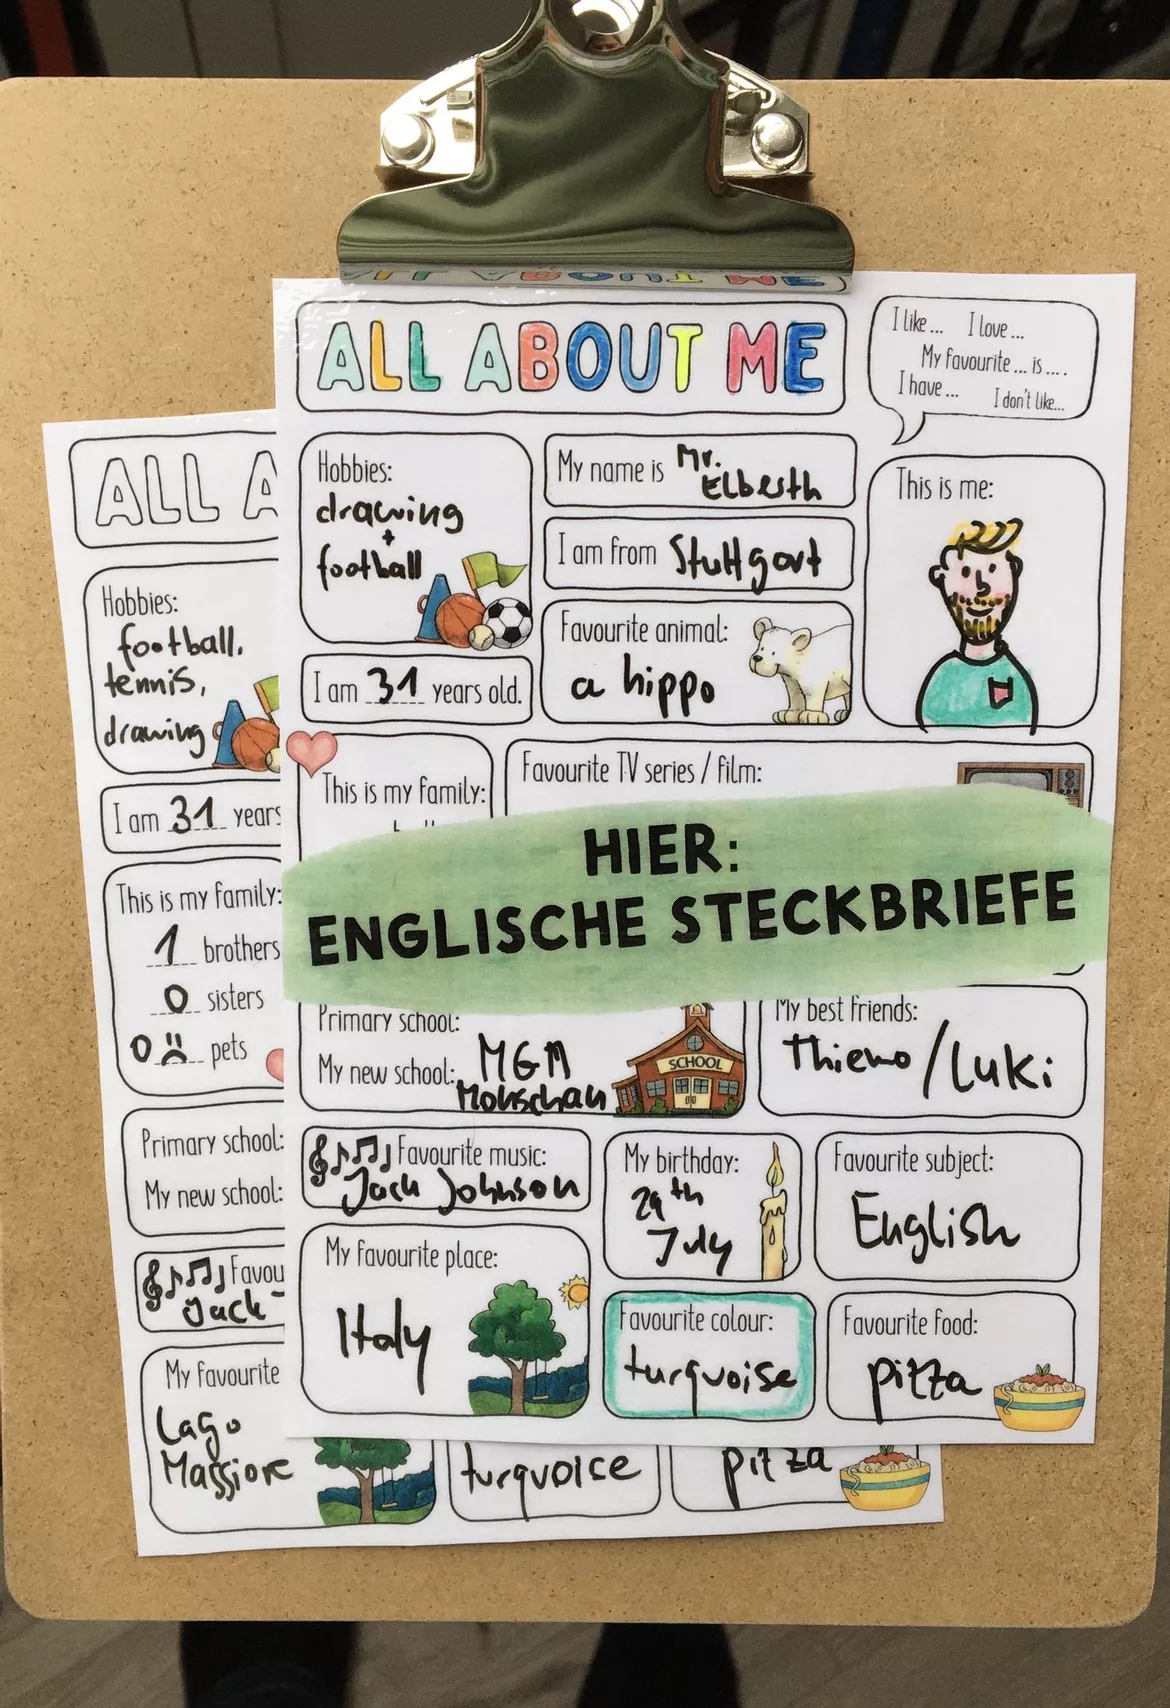 ALL ABOUT ME
I like ... I love ...
My favourite ... is ....
I have ... I don't like...
Hobbies:
drawing
+
football
My name is Mr.
Elberth
I am from Stuttgart
Favourite animal:
a hippo
This is me:
I am 31 years old.
This is my family:
Favourite TV series / film:
HIER:
ENGLISCHE STECKBRIEFE
Primary school:
My new school: MGM
Monschau
SCHOOL
My best friends:
Thiemo / Luki
Favourite music:
Jack Johnson
My birthday:
29th
July
Favourite subject:
English
My favourite place:
Italy
Favourite colour:
turquoise
Favourite food:
pizza
ALL A
Hobbies:
football,
tennis,
drawing
I am 31 years
This is my family:
1 brothers
0 sisters
0 pets
Primary school:
My new school:
Favou
Jack
My favourite
Lago
Maggiore
turquoice
pizza